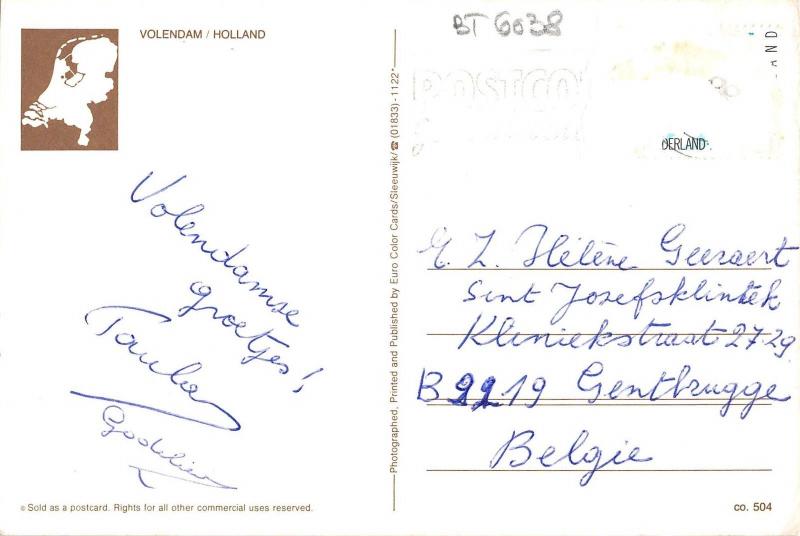 VOLENDAM / HOLLAND
BT 6038
AND
DERLAND
Volendamse
groetjes!
Paula
Godelieve
E. Z. Hélène Geeraert
Sint Jozefskliniek
Kliniekstraat 27-29
B 9219 Gentbrugge
Belgie
Photographed, Printed and Published by Euro Color Cards/Sleeuwijk/☎ (01833) - 1122*
© Sold as a postcard. Rights for all other commercial uses reserved.
co. 504